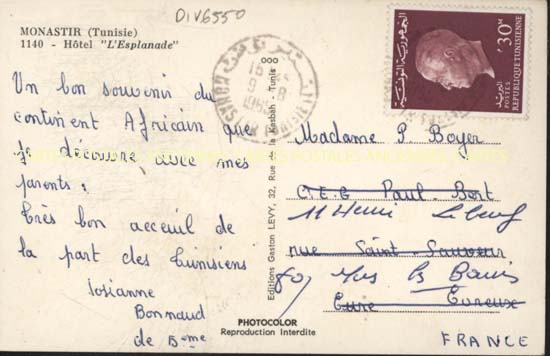 DIV6550
MONASTIR (Tunisie)
1140 - Hôtel "L'Esplanade"
Un bon souvenir du
continent Africain que
je découvre avec mes
parents.
Très bon acceuil de
la part des tunisiens
Josianne
Bonnaud
de 5ème
Editions Gaston LEVY, 32, Rue de la Kasbah - Tunis
30M
الجمهورية التونسية
البريد
POSTES
REPUBLIQUE TUNISIENNE
Madame P Boyer
C.E.G Paul-Bert
11 Henri
rue Saint-Sauveur
Eure Evreux
FRANCE
PHOTOCOLOR
Reproduction Interdite